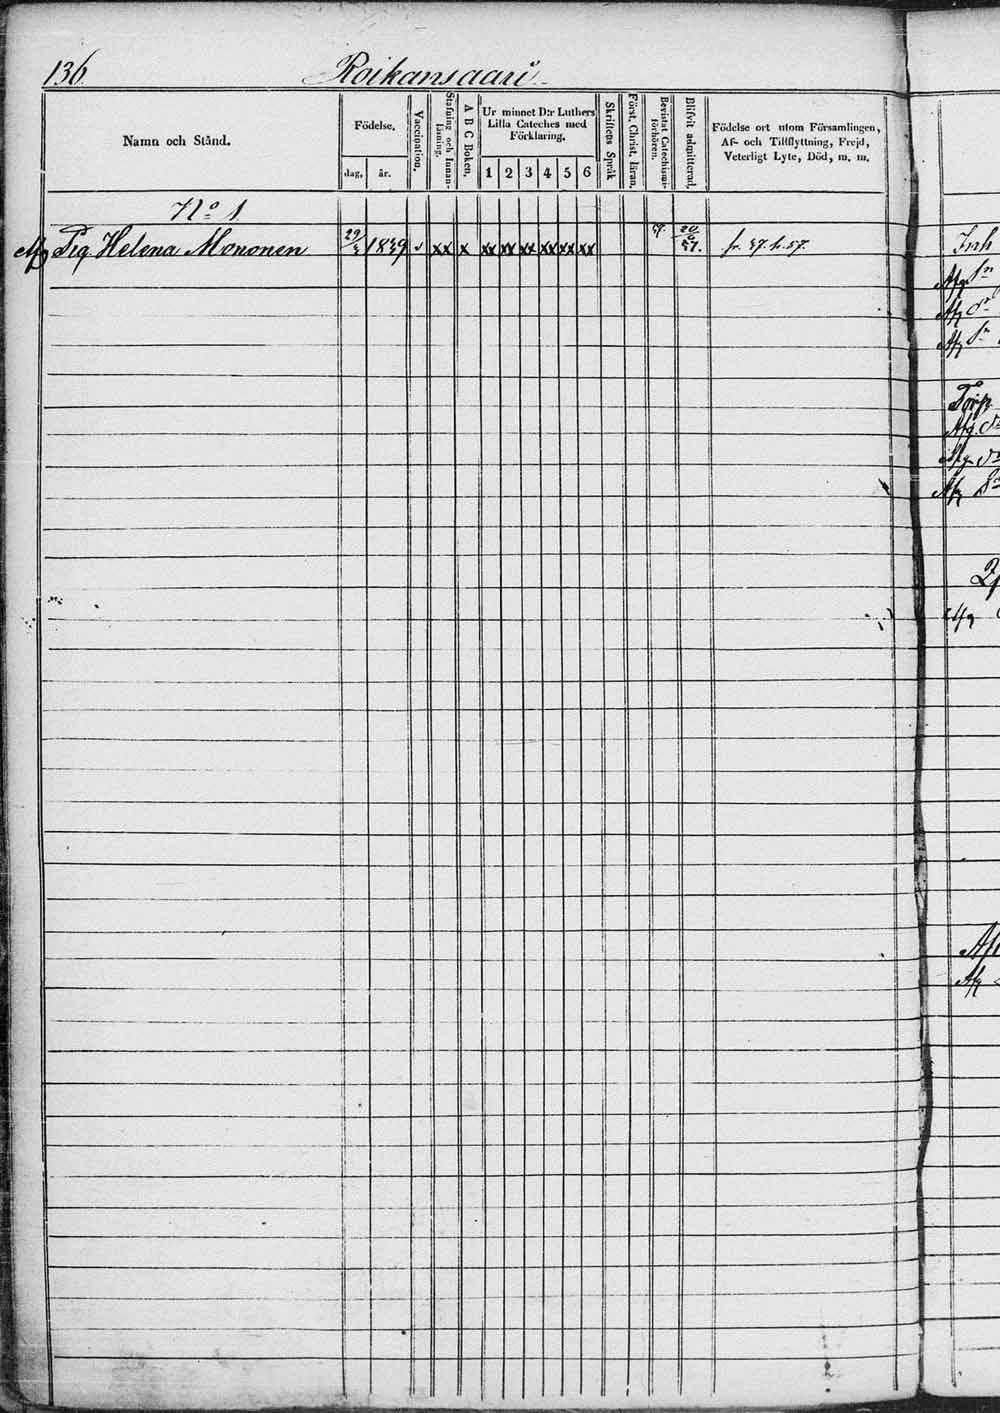 136 Roikansaari
Namn och Stånd.
Födelse.
dag. år.
Vaccination.
Stafning och Innan-läsning.
A B C Boken.
Ur minnet D:r Luthers
Lilla Cateches med
Förklaring.
1 2 3 4 5 6
Skriftens Språk
Först. Christ. läran.
Bevistat Catechismi-förhören.
Blifvit admitterad.
Födelse ort utom Församlingen,
Af- och Tillflyttning, Frejd,
Veterligt Lyte, Död, m. m.
No 1
Afg Pig. Helena Mononen 29/3 1839 v xx x xx xx xx xx xx xx 57. fr. 37. h. 57.
Inh
Afg Sn
Afg Dr
Afg Sn
Torp
Afg Dr
Afg Dr
Afg Sn
Afg
Afg